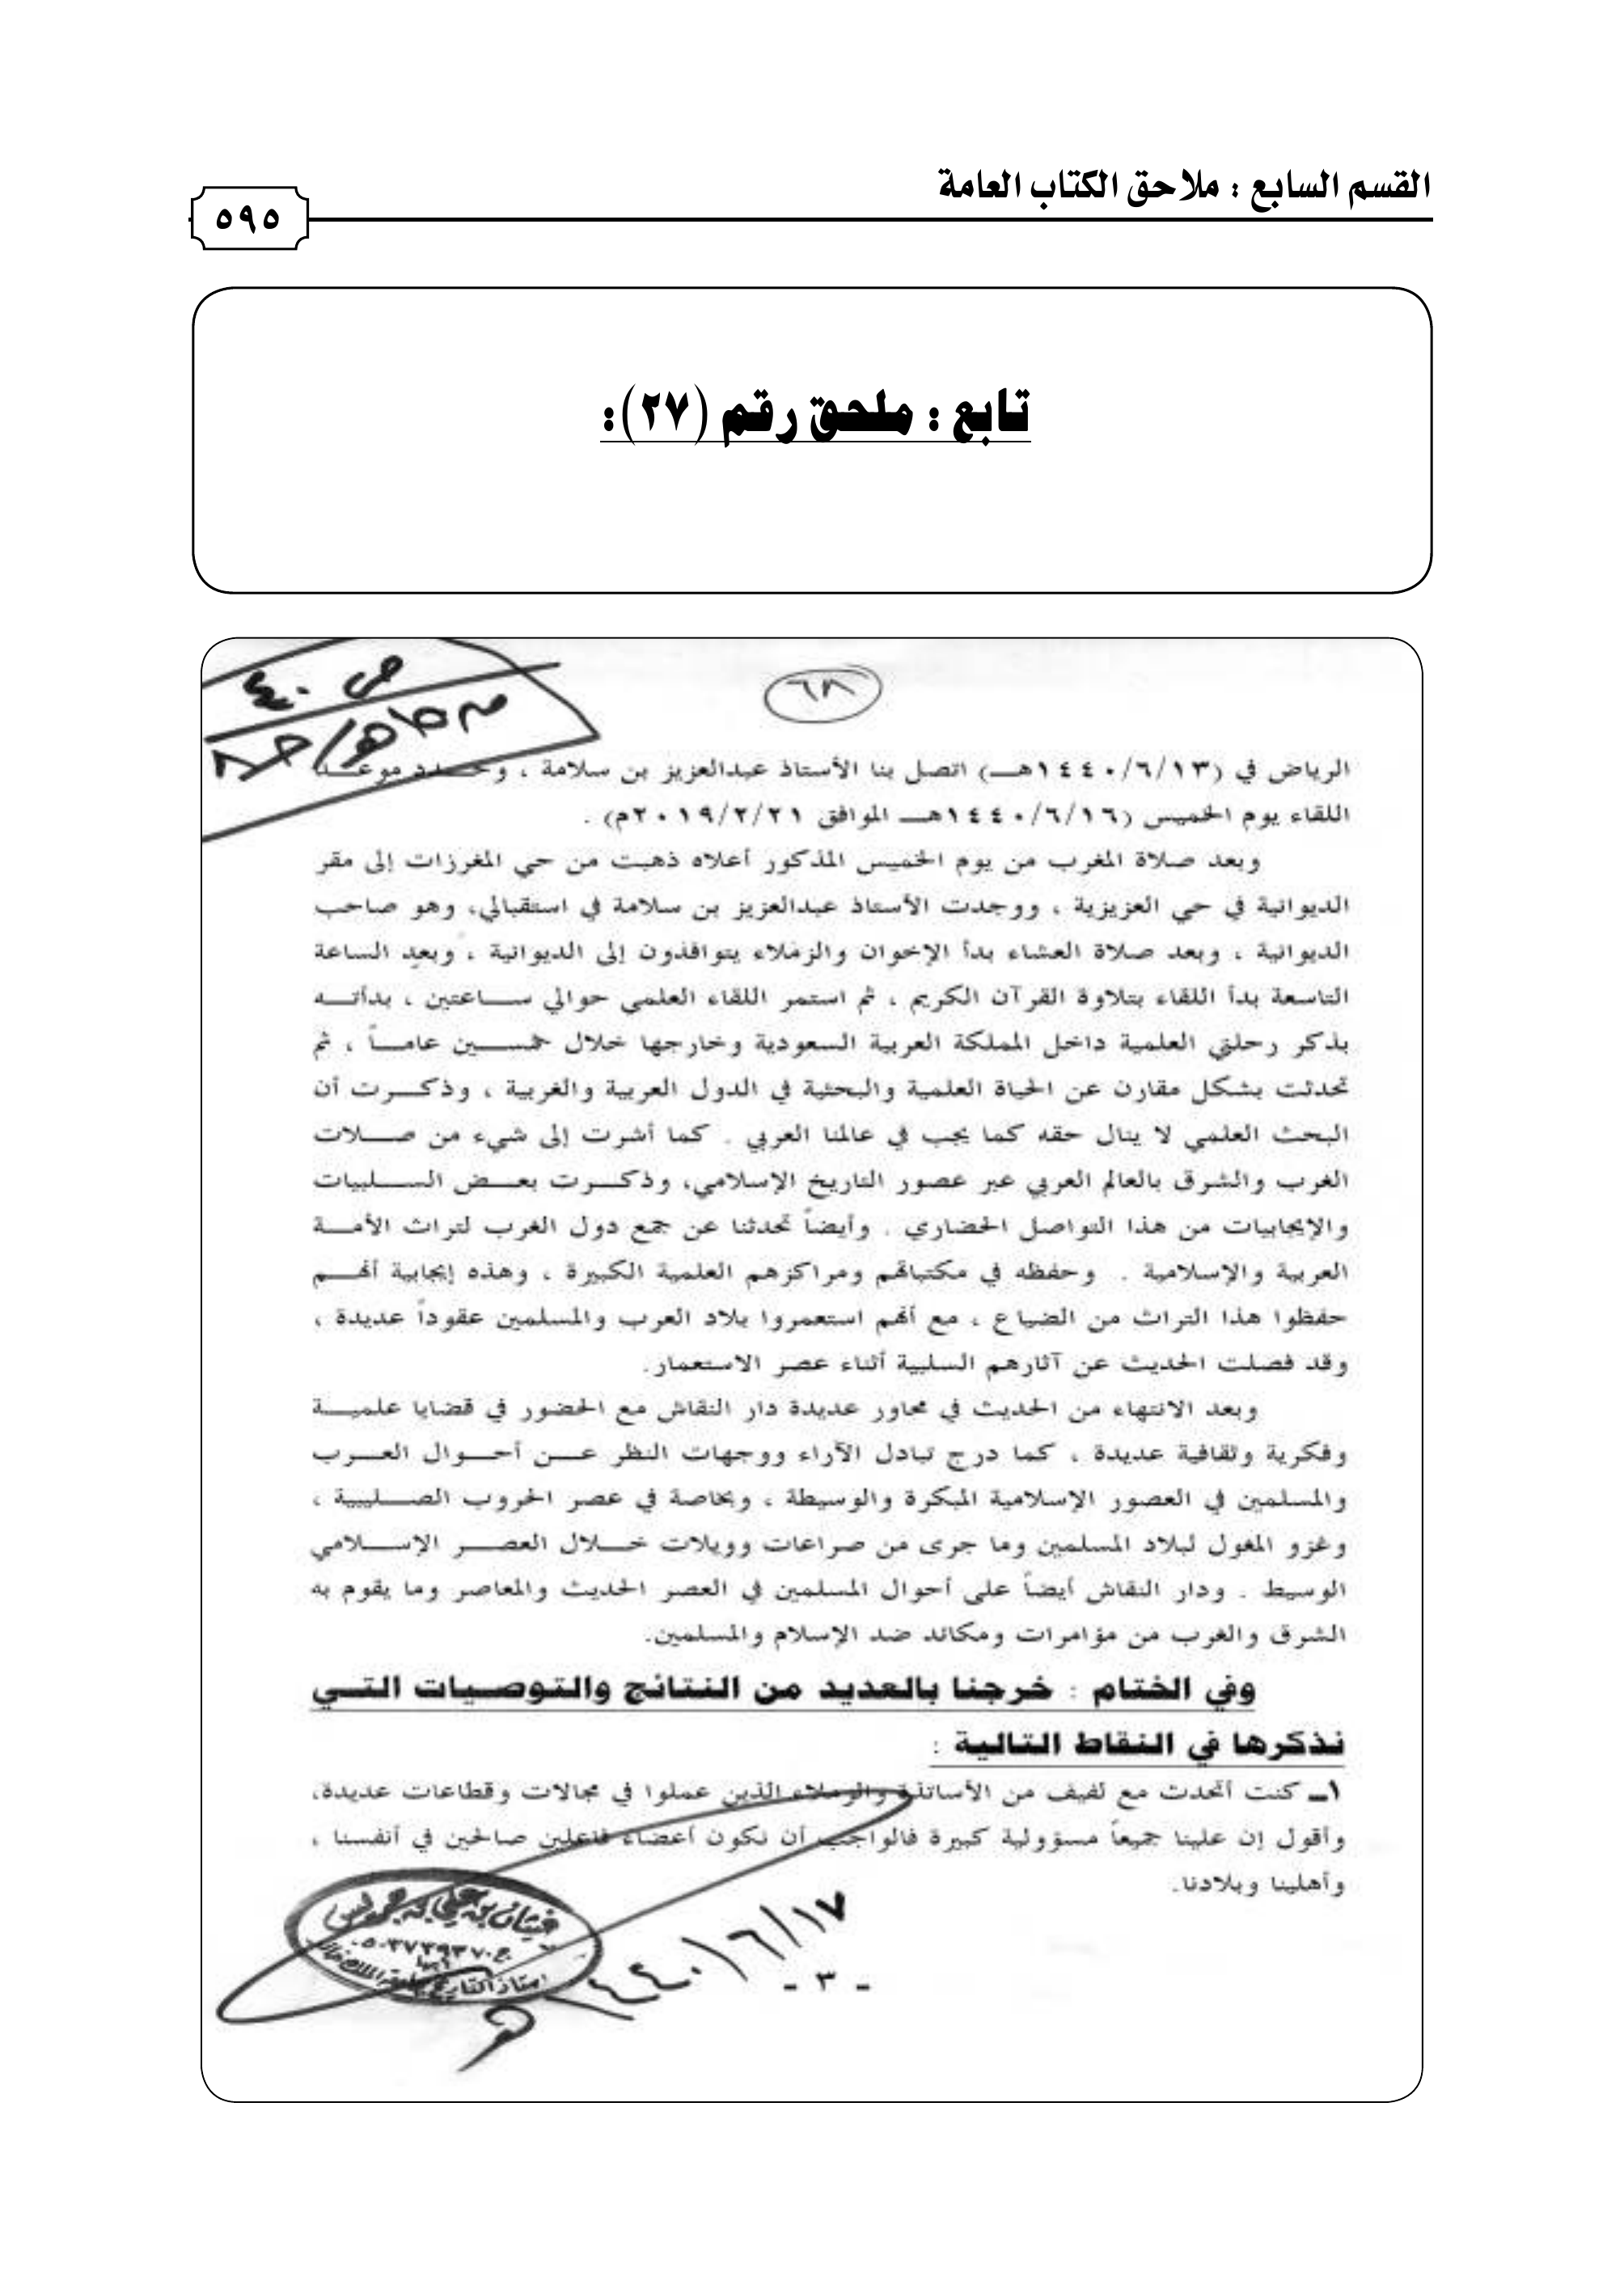 القسم السابع : ملاحق الكتاب العامة
٥٩٥
تابع : ملحق رقم (٢٧):
ص ٤٠
٦٨
الرياض في (١٤٤٠/٦/١٣هــ) اتصل بنا الأستاذ عبدالعزيز بن سلامة ، وحــدد موعــد
اللقاء يوم الخميس (١٤٤٠/٦/١٦هــ الموافق ٢٠١٩/٢/٢١م) .
وبعد صلاة المغرب من يوم الخميس المذكور أعلاه ذهبت من حي المغرزات إلى مقر
الديوانية في حي العزيزية ، ووجدت الأستاذ عبدالعزيز بن سلامة في استقبالي، وهو صاحب
الديوانية ، وبعد صلاة العشاء بدأ الإخوان والزملاء يتوافدون إلى الديوانية ، وبعد الساعة
التاسعة بدأ اللقاء بتلاوة القرآن الكريم ، ثم استمر اللقاء العلمي حوالي ســاعتين ، بدأتــه
بذكر رحلتي العلمية داخل المملكة العربية السعودية وخارجها خلال خمســين عامــاً ، ثم
تحدثت بشكل مقارن عن الحياة العلمية والبحثية في الدول العربية والغربية ، وذكــرت أن
البحث العلمي لا ينال حقه كما يجب في عالمنا العربي . كما أشرت إلى شيء من صــلات
الغرب والشرق بالعالم العربي عبر عصور التاريخ الإسلامي، وذكــرت بعــض الســلبيات
والإيجابيات من هذا التواصل الحضاري . وأيضاً تحدثنا عن جمع دول الغرب لتراث الأمــة
العربية والإسلامية . وحفظه في مكتباتهم ومراكزهم العلمية الكبيرة ، وهذه إيجابية أنهــم
حفظوا هذا التراث من الضياع ، مع أنهم استعمروا بلاد العرب والمسلمين عقوداً عديدة ،
وقد فصلت الحديث عن آثارهم السلبية أثناء عصر الاستعمار.
وبعد الانتهاء من الحديث في محاور عديدة دار النقاش مع الحضور في قضايا علميــة
وفكرية وثقافية عديدة ، كما درج تبادل الآراء ووجهات النظر عــن أحــوال العــرب
والمسلمين في العصور الإسلامية المبكرة والوسيطة ، وبخاصة في عصر الحروب الصــليبية ،
وغزو المغول لبلاد المسلمين وما جرى من صراعات وويلات خــلال العصــر الإســلامي
الوسيط . ودار النقاش أيضاً على أحوال المسلمين في العصر الحديث والمعاصر وما يقوم به
الشرق والغرب من مؤامرات ومكائد ضد الإسلام والمسلمين.
وفي الختام : خرجنا بالعديد من النتائج والتوصيات التي
نذكرها في النقاط التالية :
١ــ كنت أتحدث مع لفيف من الأساتذة والزملاء الذين عملوا في مجالات وقطاعات عديدة،
وأقول إن علينا جميعاً مسؤولية كبيرة فالواجب أن نكون أعضاء فاعلين صالحين في أنفسنا ،
وأهلينا وبلادنا.
غيثان بن علي بن جريس
أستاذ التاريخ بجامعة الملك خالد
١٤٤٠/٦/١٧هـ
- ٣ -